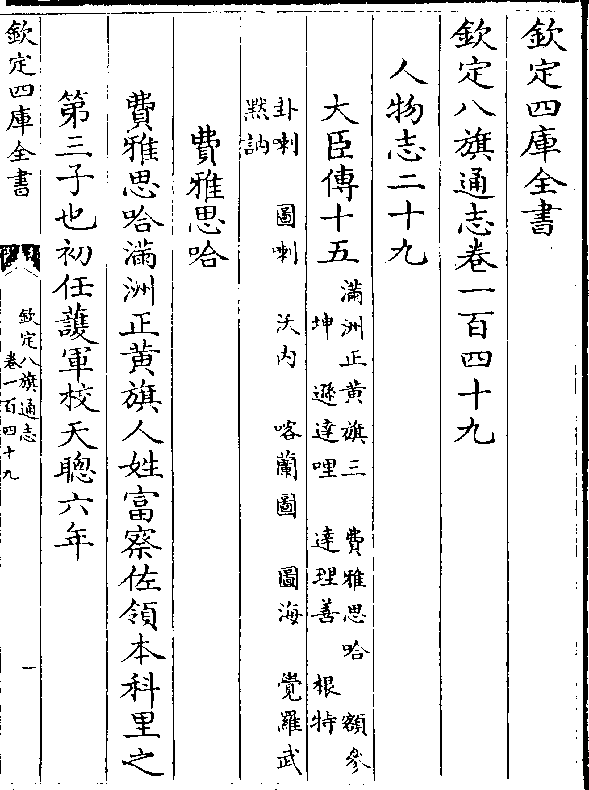 欽定四庫全書
欽定八旗通志卷一百四十九
人物志二十九
大臣傳十五
滿洲正黃旗三 費雅思哈 額參
坤 遜達哩 達理善 根特
卦喇 圖喇 沃內 喀蘭圖 圖海 覺羅武
黙訥
費雅思哈
費雅思哈滿洲正黃旗人姓富察佐領本科里之
第三子也初任護軍校天聰六年
欽定四庫全書
欽定八旗通志
卷一百四十九
一